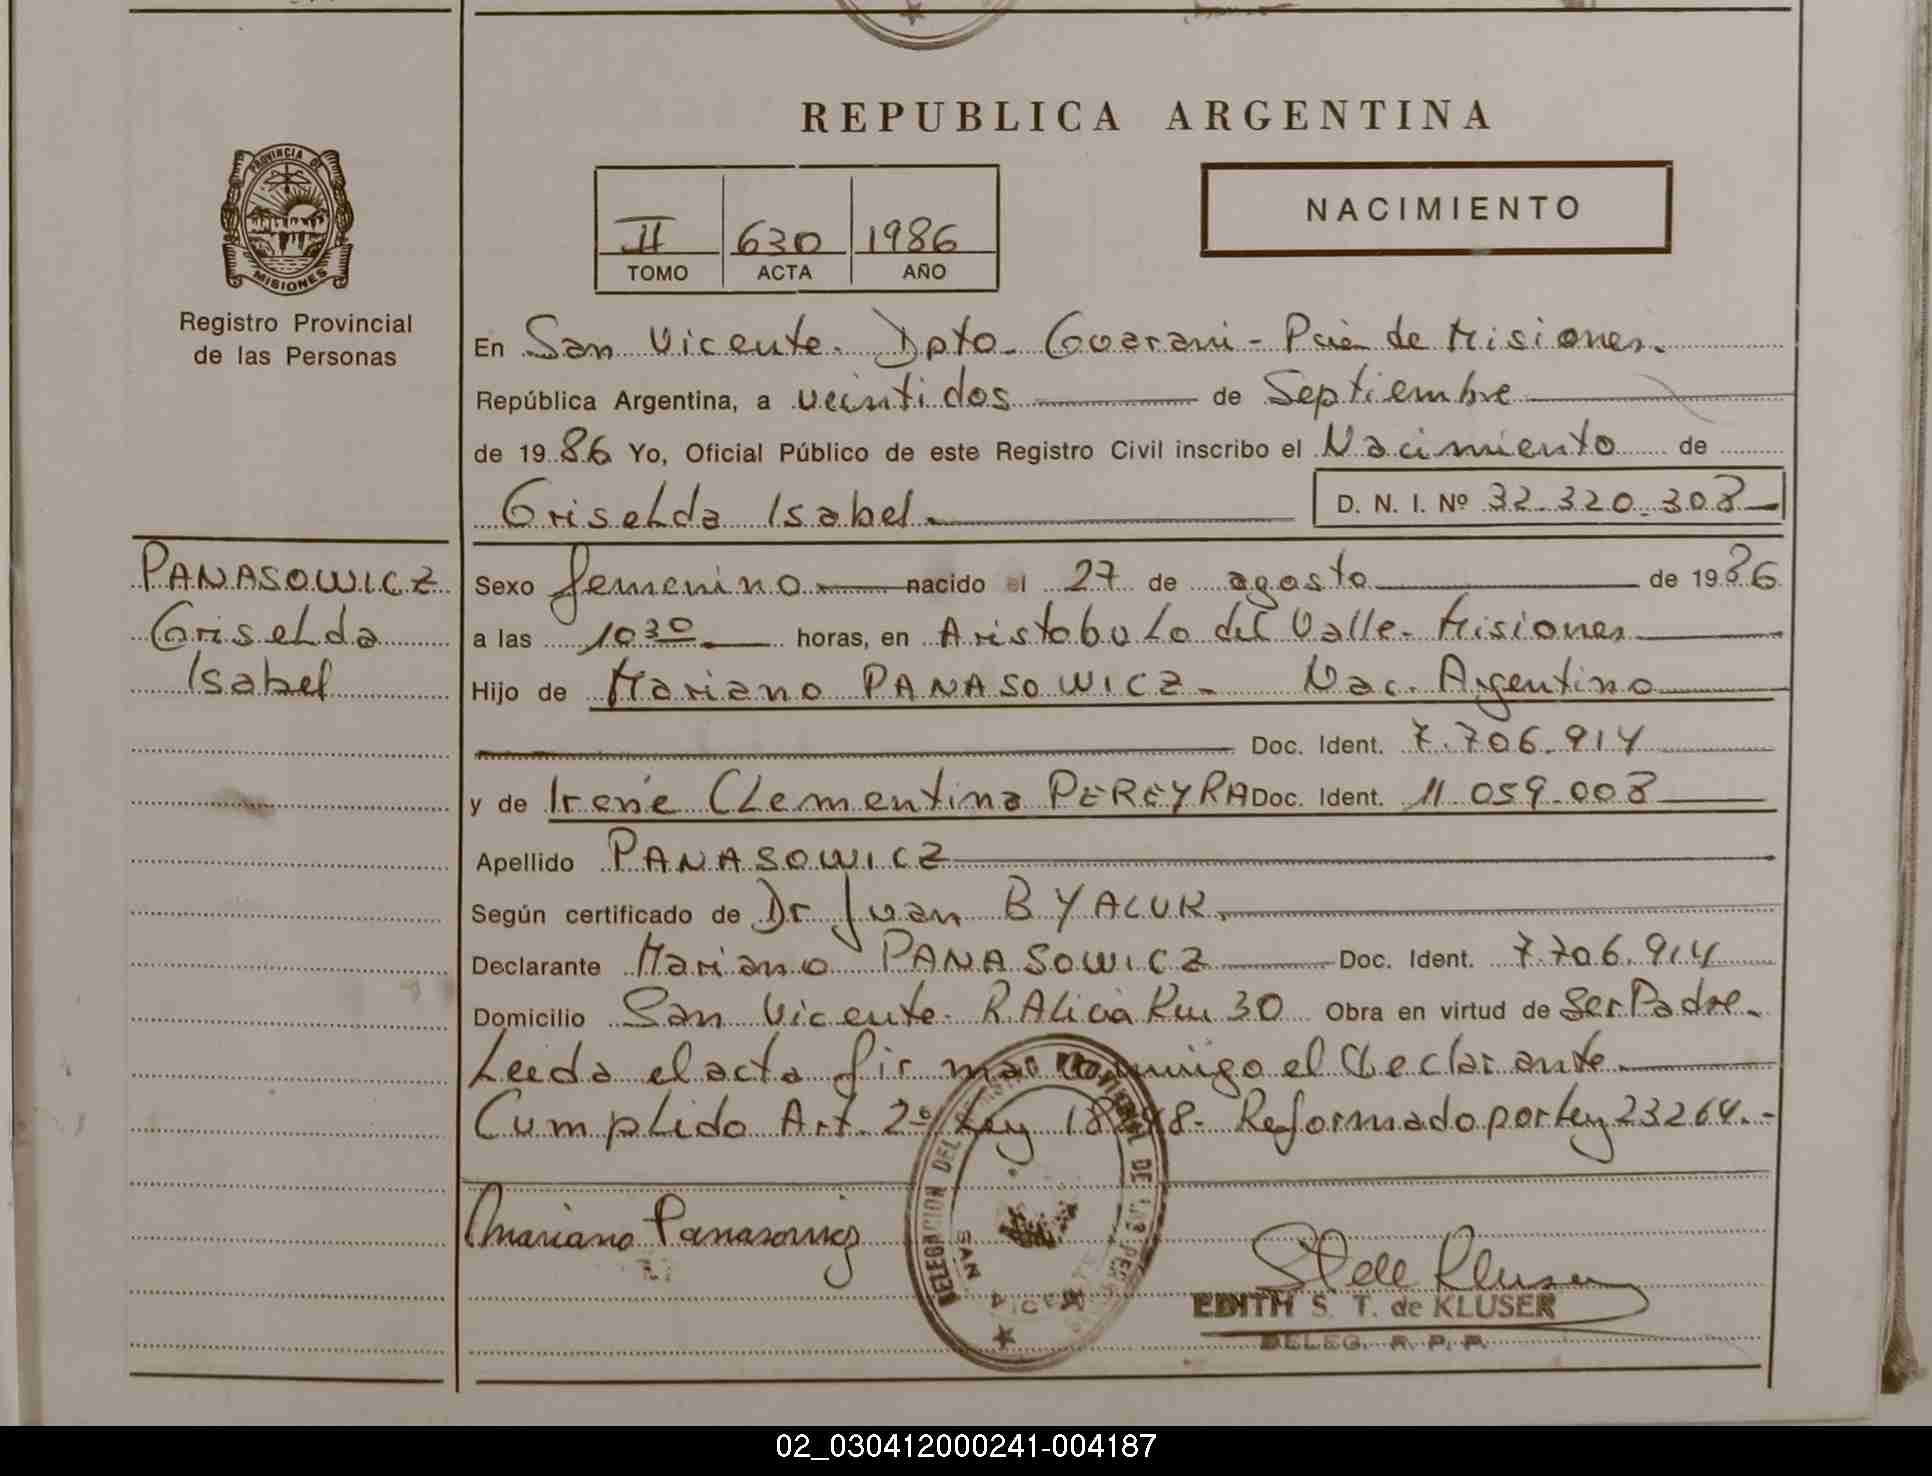 REPUBLICA ARGENTINA
PROVINCIA DE
MISIONES
Registro Provincial
de las Personas
NACIMIENTO
II 630 1986
TOMO ACTA AÑO
En San Vicente. Dpto. Guarani - Pcia de Misiones.
República Argentina, a veintidos de Septiembre
de 1986 Yo, Oficial Público de este Registro Civil inscribo el Nacimiento de
Griselda Isabel. D. N. I. Nº 32.320.308
PANASOWICZ
Griselda
Isabel
Sexo femenino nacido el 27 de agosto de 1986
a las 10 30 horas, en Aristobulo del Valle - Misiones
Hijo de Mariano PANASOWICZ - Nac. Argentino
Doc. Ident. 7.706.914
y de Irene Clementina PEREYRA Doc. Ident. 11.059.008
Apellido PANASOWICZ
Según certificado de Dr Juan BYALUK.
Declarante Mariano PANASOWICZ Doc. Ident. 7.706.914
Domicilio San Vicente - R. Alicia Km 30 Obra en virtud de Ser Padre.
Leida el acta firma conmigo el declarante
Cumplido Art. 2º Ley 18248 - Reformado por Ley 23264.-
Mariano Panasowicz
DELEGACION DEL REGISTRO PROVINCIAL DE LAS PERSONAS
SAN VICENTE
EDITH S. T. de KLUSER
DELEG. R. P. P.
02_030412000241-004187